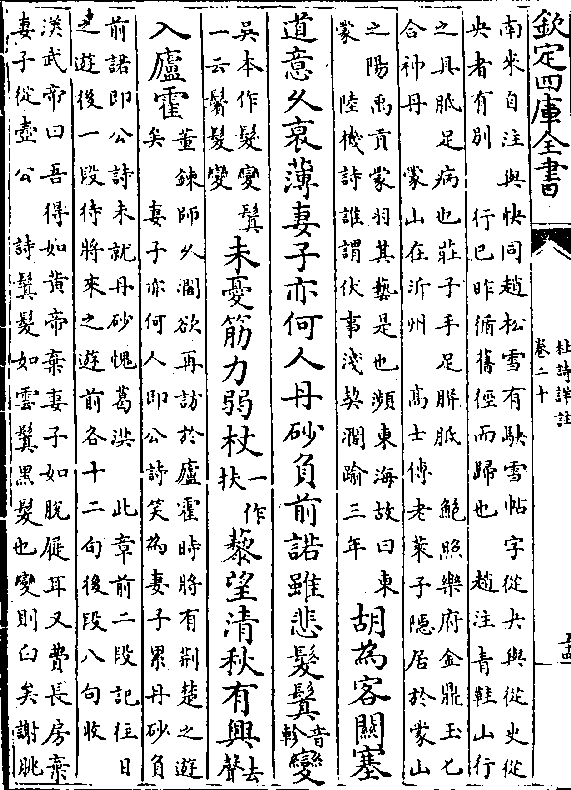 欽定四庫全書
杜詩詳註
卷二十
南來自注與快同趙松雪有駃雪帖字從夬與從史從
央者有別　行已昨循舊徑而歸也　趙注青鞋山行
之具胝足病也莊子手足胼胝　鮑照樂府金鼎玉匕
合神丹　蒙山在沂州　高士傳老萊子隱居於蒙山
之陽禹貢蒙羽其藝是也瀕東海故曰東
蒙　陸機詩誰謂伏事淺契濶踰三年
胡為客關塞
道意久衰薄妻子亦何人丹砂負前諾雖悲髮鬒音軫變
吳本作髮變鬒
一云鬢髮變
未憂筋力弱杖一作扶藜望清秋有興去聲
入廬霍
董鍊師久濶欲再訪於廬霍時將有荆楚之遊
矣　妻子亦何人即公詩笑為妻子累丹砂負
前諾即公詩未就丹砂愧葛洪　此章前二段記往日
之遊後一段待將來之遊前各十二句後段八句收
漢武帝曰吾得如黄帝棄妻子如脱屣耳又費長房棄
妻子從壺公　詩鬒髮如雲鬒黑髮也變則白矣謝朓